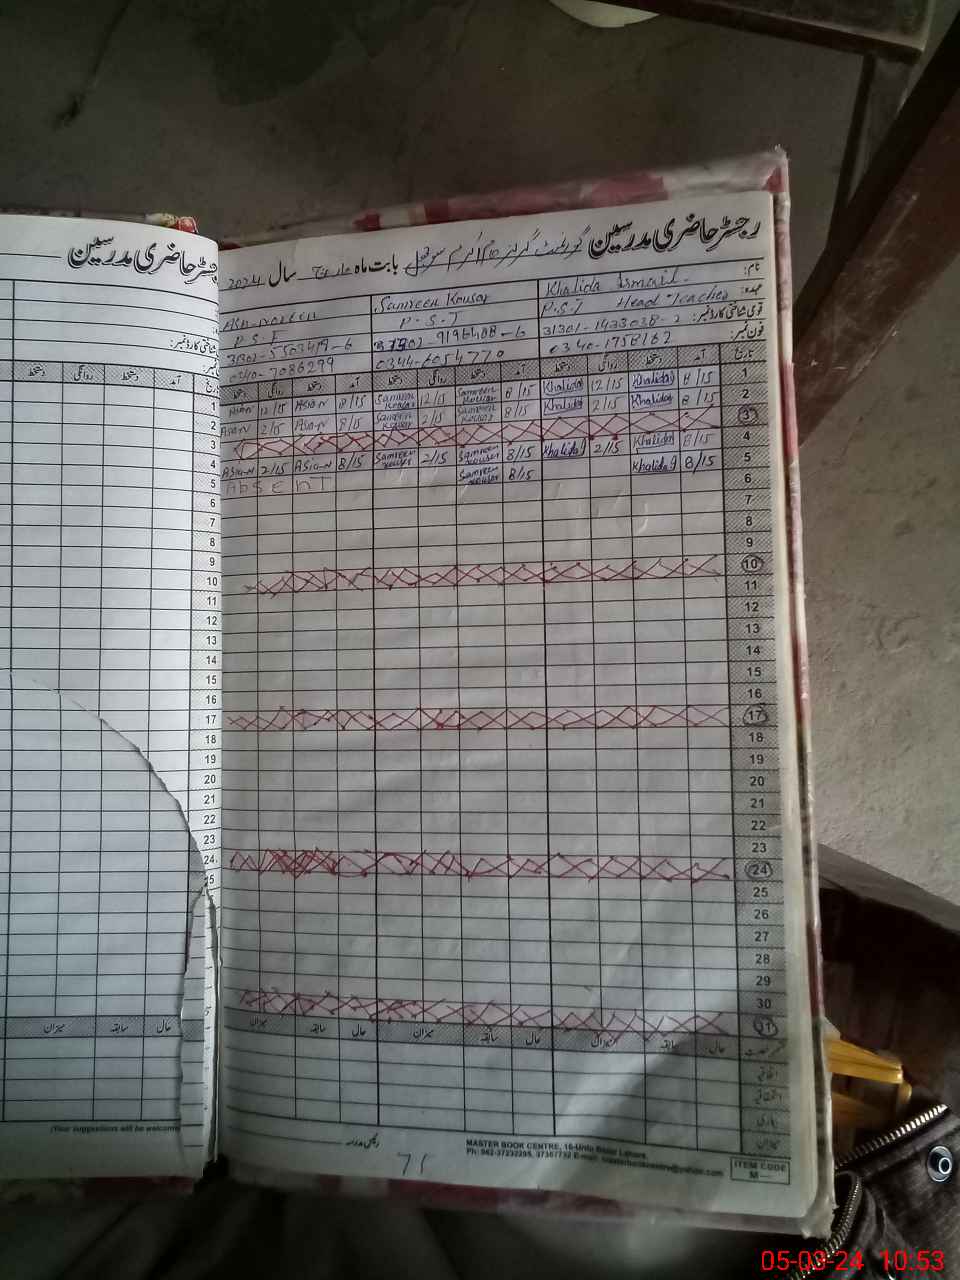 رجسٹر حاضری مدرسین
رجسٹر حاضری مدرسین گورنمنٹ گرلز بابت ماہ مارچ سال 2024
نام: Khalida Ismail Samreen Kousar Asia Noreen
عہدہ: P.S.T Head Teacher P.S.T P S T
قومی شناختی کارڈ نمبر: 31301-1433038-2 31301-9196408-6 31301-5503419-6
فون نمبر: 0340-1758162 0344-6054770 0340-7086299
تاریخ آمد دستخط روانگی دستخط آمد دستخط روانگی دستخط آمد دستخط روانگی دستخط
1 8/15 Khalida 12/15 Khalida 8/15 Samreen Kousar 12/15 Samreen Kousar 8/15 Asia-N 12/15 Asia-N
2 8/15 Khalida 2/15 Khalida 8/15 Samreen Kousar 2/15 Samreen Kousar 8/15 Asia-N 2/15 Asia-N
3
4 8/15 Khalida 2/15 Khalida 8/15 Samreen Kousar 2/15 Samreen Kousar 8/15 Asia-N 2/15 Asia-N
5 8/15 Khalida 8/15 Samreen Kousar Absent
6
7
8
9
10
11
12
13
14
15
16
17
18
19
20
21
22
23
24
25
26
27
28
29
30
31
حال سابقہ میزان حال سابقہ میزان حال سابقہ میزان
اتفاقیہ
میزان
رئیس مدرسہ
71
MASTER BOOK CENTRE, 16-Urdu Bazar Lahore.
Ph: 042-37232295, 37367732 E-mail: masterbookcentre@yahoo.com
ITEM CODE
M—
دستخط روانگی دستخط آمد تاریخ
1
2
3
4
5
6
7
8
9
10
11
12
13
14
15
16
17
18
19
20
21
22
23
24
میزان سابقہ حال
(Your suggestions will be welcome
05-03-24 10:53